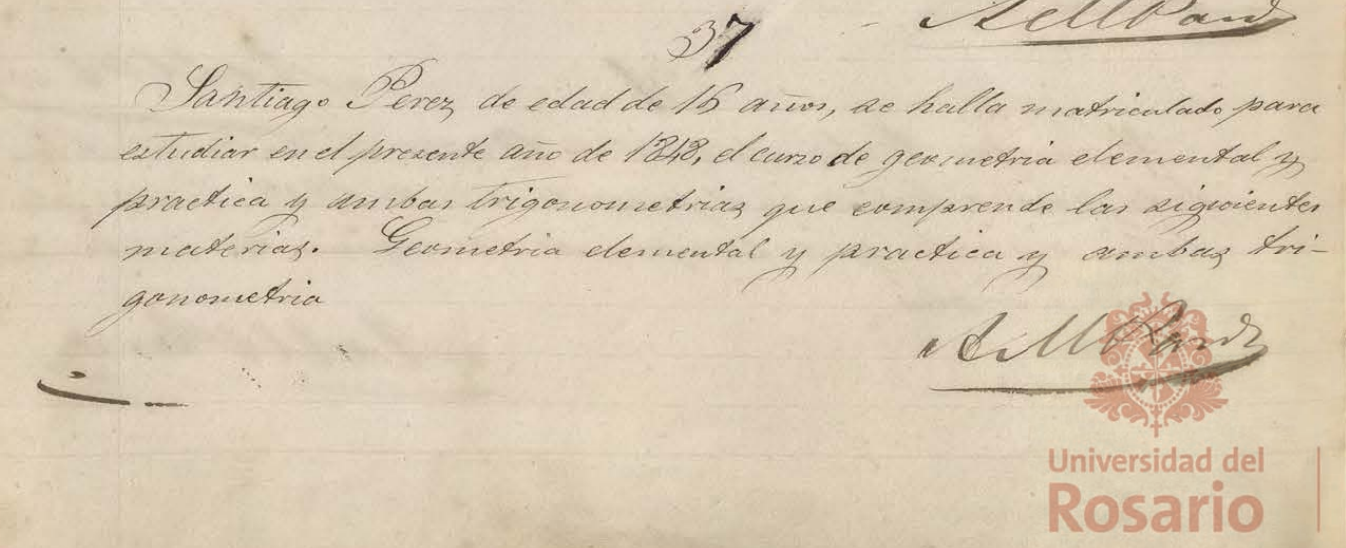 37
Santiago Perez, de edad de 16 años, se halla matriculado para
estudiar en el presente año de 1848, el curso de geometria elemental y
practica y ambas trigonometrias que comprende las sigioientes
materias. Geometria elemental y practica y ambas tri-
gonometria
Universidad del
Rosario